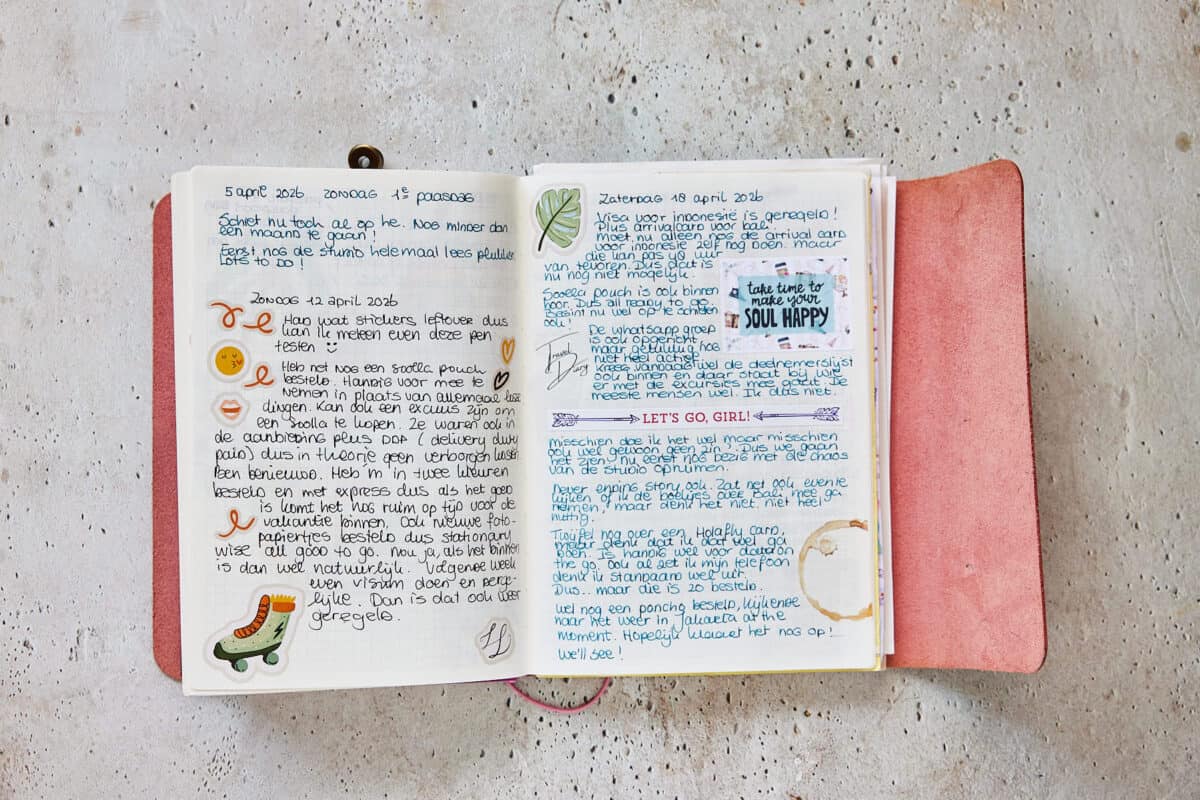 5 april 2026 ZONDAG 1e PAASDAG
Schiet nu toch al op he. Nog minder dan
een maand te gaan!
Eerst nog de studio helemaal leeg
LOTS TO DO!
ZONDAG 12 april 2026
Had wat stickers leftover dus
kan ik meteen even deze pen
testen
Heb net nog een pouch
besteld. Handig voor mee te
nemen in plaats van allemaal losse
dingen. Kan ook een excuus zijn om
een te kopen. Ze waren ook in
de aanbieding plus DDP (delivery duty
paid) dus in theorie geen verborgen kosten
Ben benieuwd. Heb m in twee kleuren
besteld en met express dus als het goed
is komt het nog ruim op tijd voor de
vakantie binnen. Ook nieuwe foto-
papiertjes besteld dus stationary
wise all good to go. Nou ja, als het binnen
is dan wel natuurlijk. Volgende week
even visum doen en derge-
lijke. Dan is dat ook weer
geregeld.
Zaterdag 18 april 2026
Visa voor indonesië is geregeld!
Plus arrivalcard voor bali.
moet nu alleen nog de arrival card
voor indonesie zelf nog doen. maar
die kan pas uur
van tevoren. Dus dat is
nu nog niet mogelijk.
pouch is ook binnen
hoor. Dus all ready to go.
Begint nu wel op te schieten
ook!
take time to
make your
SOUL HAPPY
De whatsapp groep
is ook opgericht
maar gelukkig nog
niet heel actief.
Travel
Diary
kreeg vandaag wel de deelnemerslijst
ook binnen en daar staat bij wie
er met de excursies mee gaat. De
meeste mensen wel. Ik dus niet.
LET'S GO, GIRL!
misschien doe ik het wel maar misschien
ook wel gewoon geen zin. Dus we gaan
het zien. nu eerst nog bezig met de chaos
van de studio opruimen.
Never ending story ook. Zat net ook even te
kijken of ik de boekjes over Bali mee ga
nemen, maar denk het niet. niet heel
nuttig.
Twijfel nog over een Holafly card,
maar denk dat ik dat wel ga
doen. Is handig wel voor data on
the go. Ook al zet ik mijn telefoon
denk ik standaard wel uit.
Dus.. maar die is zo besteld.
Wel nog een poncho besteld, kijkende
naar het weer in Jakarta at the
moment. Hopelijk klaart het nog op!
We'll see!